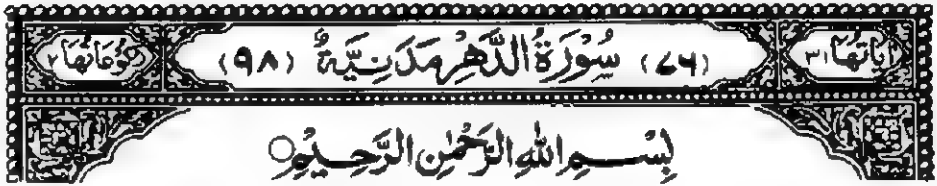 اٰیَاتُهَا ۳۱ (۷۶) سُوْرَةُ الدَّهْرِ مَدَنِيَّةٌ (۹۸) رُكُوْعَاتُهَا ۲
بِسْمِ اللّٰهِ الرَّحْمٰنِ الرَّحِيْمِ ○